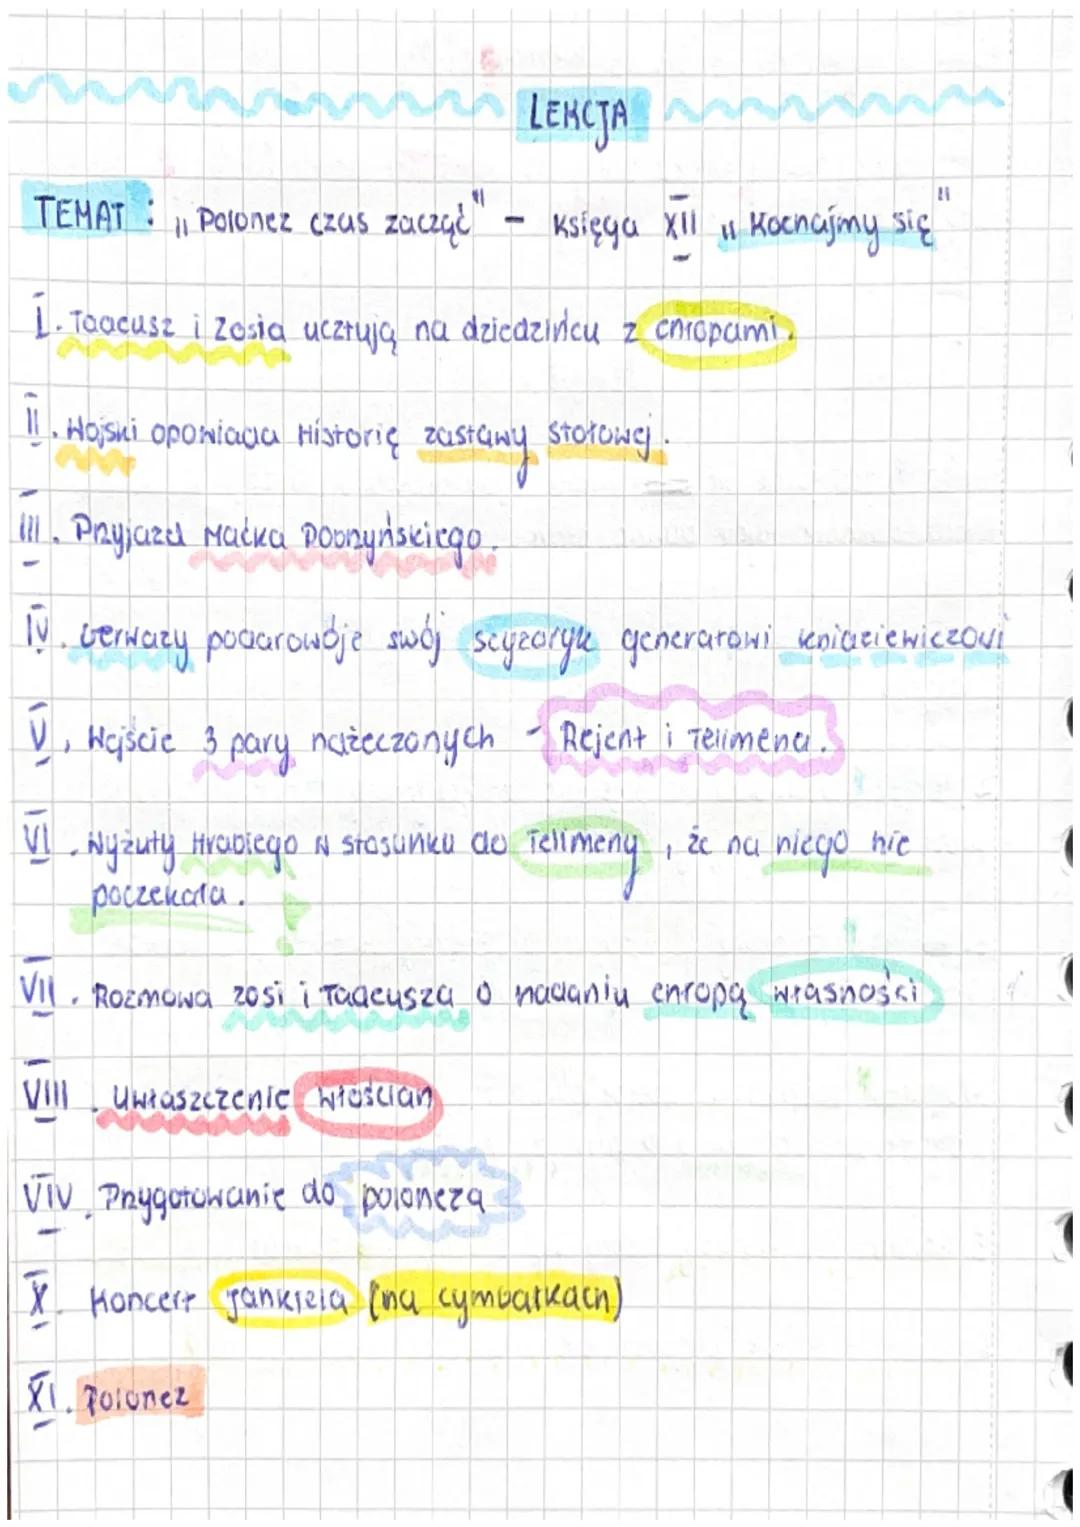 LEKCJA
TEMAT : „Polonez czas zacząć" – księga XII „Kochajmy się"
I. Tadeusz i Zosia ucztują na dziedzińcu z chłopami.
II. Wojski opowiada historię zastawy stołowej.
III. Przyjazd Maćka Dobrzyńskiego.
IV. Gerwazy podarowóje swój scyzoryk generałowi kniaziewiczowi
V. Wejście 3 pary nażeczonych - Rejent i Telimena.
VI. Wyżuty Hrabiego w stosunku do Telimeny, że na niego nie
poczekała.
VII. Rozmowa Zosi i Tadeusza o nadaniu chłopą własności
VIII. Uwłaszczenie włościan
VIV. Przygotowanie do poloneza
X. Koncert Jankiela (na cymbałkach)
XI. Polonez